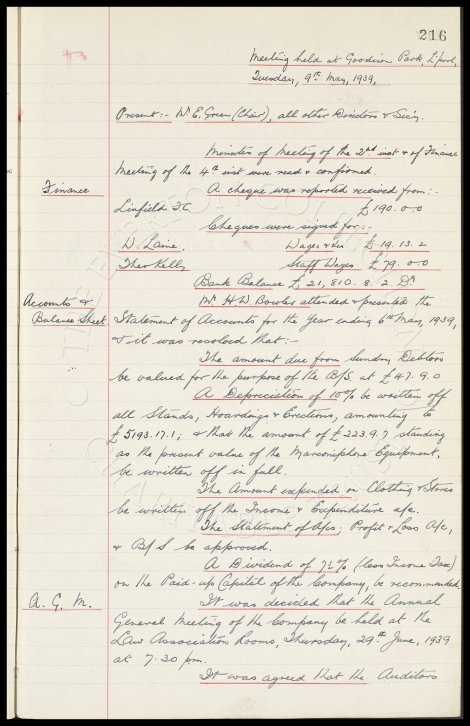 216
Meeting held at Goodison Park, L'pool,
Tuesday, 9th May, 1939,
Present:- Mr E. Green (Chair), all other Directors & Sec'y.
Minutes of Meeting of the 2nd inst & of Finance
Meeting of the 4th inst were read & confirmed.
Finance
A cheque was reported received from:-
Linfield F.C. £190.0.0
Cheques were signed for:-
W. Laine. Wages &c £19.13.2
Theo Kelly Staff Wages £79.0.0
Bank Balance £21,810.8.2 Dr
Accounts &
Balance Sheet
Mr H.W. Bowler attended & presented the
Statement of Accounts for the Year ending 6th May, 1939,
& it was resolved that:-
The amount due from Sundry Debtors
be valued for the purpose of the B/S at £47.9.0
A Depreciation of 10% be written off
all Stands, Hoardings & Erections, amounting to
£5193.17.1; & that the amount of £223.9.7 standing
as the present value of the Marconiphone Equipment,
be written off in full.
The Amount expended on Clothing & Stores
be written off the Income & Expenditure a/c.
The Statement of A/cs; Profit & Loss A/c,
& B/S be approved.
A Dividend of 7½% (less Income Tax)
on the Paid-up Capital of the Company, be recommended
A. G. M.
It was decided that the Annual
General Meeting of the Company be held at the
Law Association Rooms, Thursday, 29th June, 1939
at 7.30 pm.
It was agreed that the Auditors